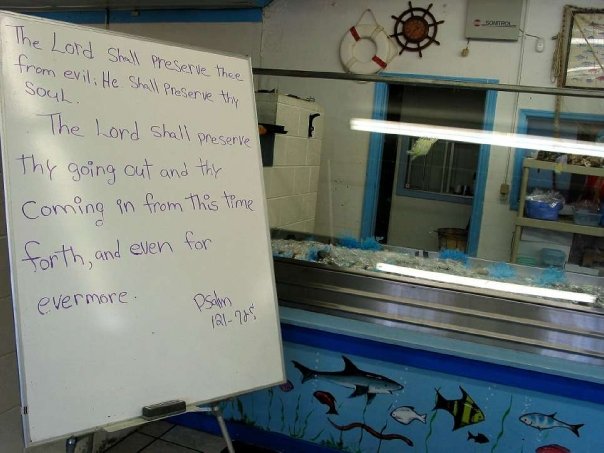 The Lord shall preserve thee
from evil: He shall preserve thy
soul.
The Lord shall preserve
thy going out and thy
coming in from this time
forth, and even for
evermore.
Psalm
121-7&8
SONITROL